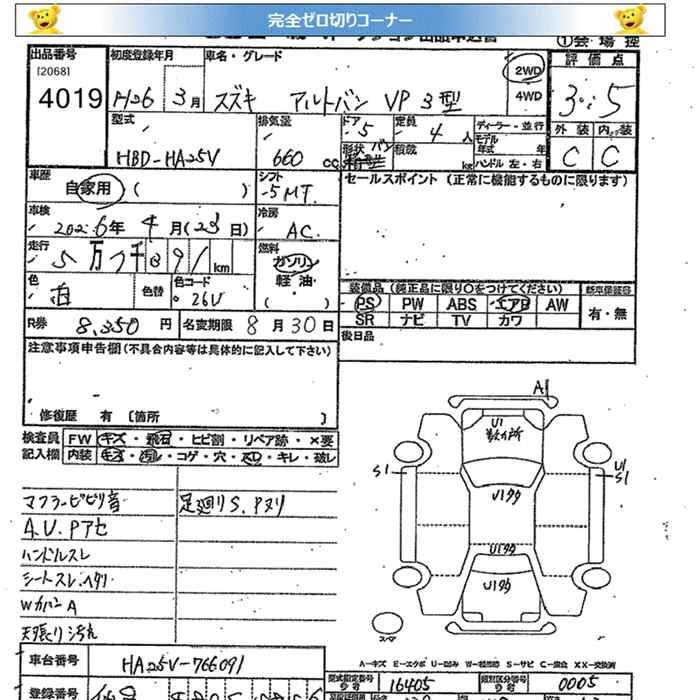 完全ゼロ切りコーナー
出品番号
[2068]
4019
初度登録年月
H26 3月
車名・グレード
スズキ アルトバン VP 3型
2WD
4WD
評価点
3.5
外装 内装
C C
型式
HBD-HA25V
排気量
660 cc
ドア
5
定員
4 人
形状 バン
積載 kg
ディーラー・並行
モデル年式 年
ハンドル 左・右
車歴
自家用 ( )
シフト
5MT.
セールスポイント (正常に機能するものに限ります)
車検
2026年 4月(23日)
冷房
AC.
走行
km
燃料
ガソリン
軽油
( )
色
白
色替
色コード
26U
装備品 (純正品に限り○をつけてください)
PS PW ABS エアB AW
SR ナビ TV カワ
新車保証書
有・無
R券 8,350 円
名変期限 8月30日
後日品
注意事項申告欄 (不具合内容等は具体的に記入して下さい)
修復歴 有 [箇所 ]
検査員記入欄
FW キズ・飛石・ヒビ割・リペア跡・×要
内装 キズ・汚レ・コゲ・穴・スレ・キレ・破レ
マフラービビリ音
足廻りS.Pヌリ
A.U.Pアセ
ハンドルスレ
シートスレ.ヘタリ
WカバンA
天張り汚れ
A1
U1
数カ所
S1
U1
S1
U1タタ
U1タタ
U1タタ
スペア
A-キズ E-エクボ U-凹み W-補修跡 S-サビ C-腐食 XX-交換済
車台番号
HA25V-766091
型式指定番号
16405
類別区分番号
0005
登録番号